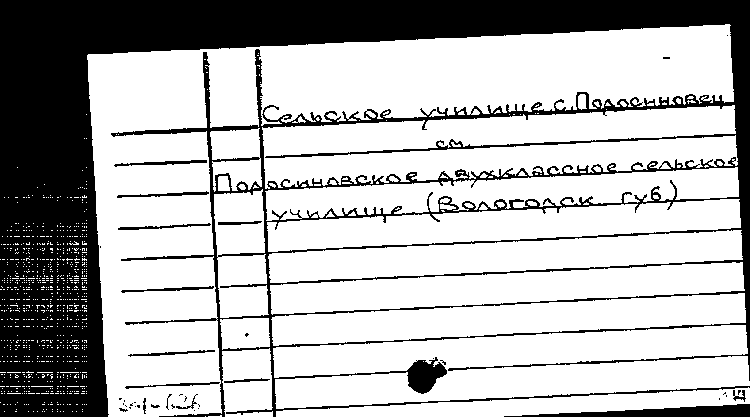 Сельское училище с. Подосиновец
см.
Подосиновское двухклассное сельское
училище (Вологодск. губ.)